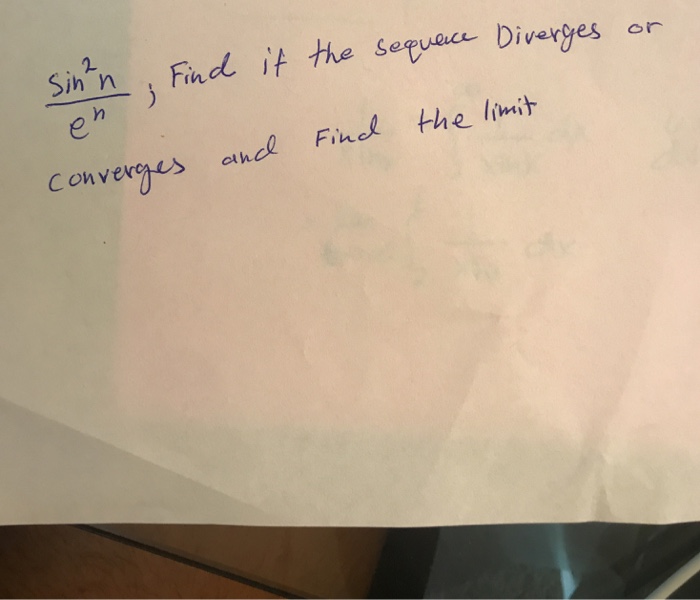 sin²n / eⁿ ; Find if the sequence Diverges or
converges and Find the limit